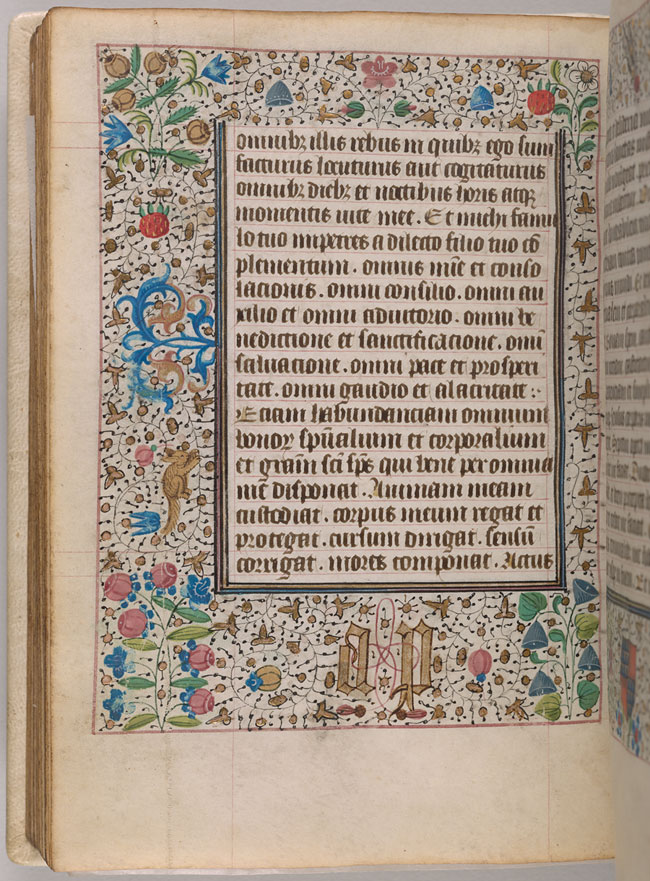 omnibꝫ illis rebus in quibꝫ ego sum
facturus locuturus aut cogitaturus
omnibꝫ diebꝫ et noctibus horis atqꝫ
momentis uite mee. Et michi famu
lo tuo impetres a dilecto filio tuo cō
plementum. omnis mīe et conso
lacionis. omni consilio. omni au
xilio et omni adiutorio. omni be
nedictione et sanctificacione. omī
saluacione. omni pace et prosperi
tate. omni gaudio et alacritate :
Eciam habundanciam omnium
bonoꝝ sp̄ualium et corporalium
et gr̄am sc̄i sp̄s qui bene per omnia
me disponat. Animam meam
custodiat. corpus meum regat et
protegat. cursum dirigat. sensū
corrigat. mores componat. Actus
a p